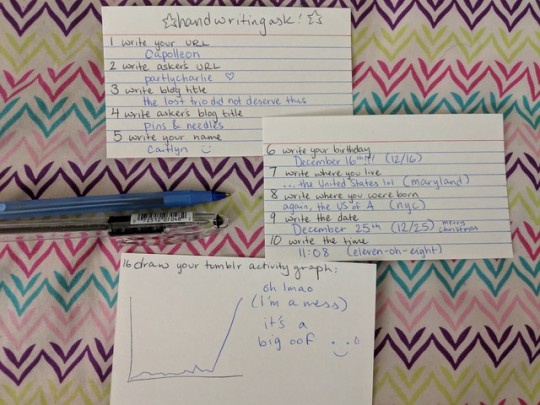 handwriting ask!
1 write your URL
Capolleon
2 write asker's URL
partlycharlie ♡
3 write blog title
the lost trio did not deserve this
4 write asker's blog title
pins & needles
5 write your name
Caitlyn :)
6 write your birthday
December 16th!! (12/16)
7 write where you live
...the United States lol (maryland)
8 write where you were born
again, the US of A (nyc)
9 write the date
December 25th (12/25) merry christmas
10 write the time
11:08 (eleven-oh-eight)
16 draw your tumblr activity graph:
oh lmao
(I'm a mess)
it's a
big oof